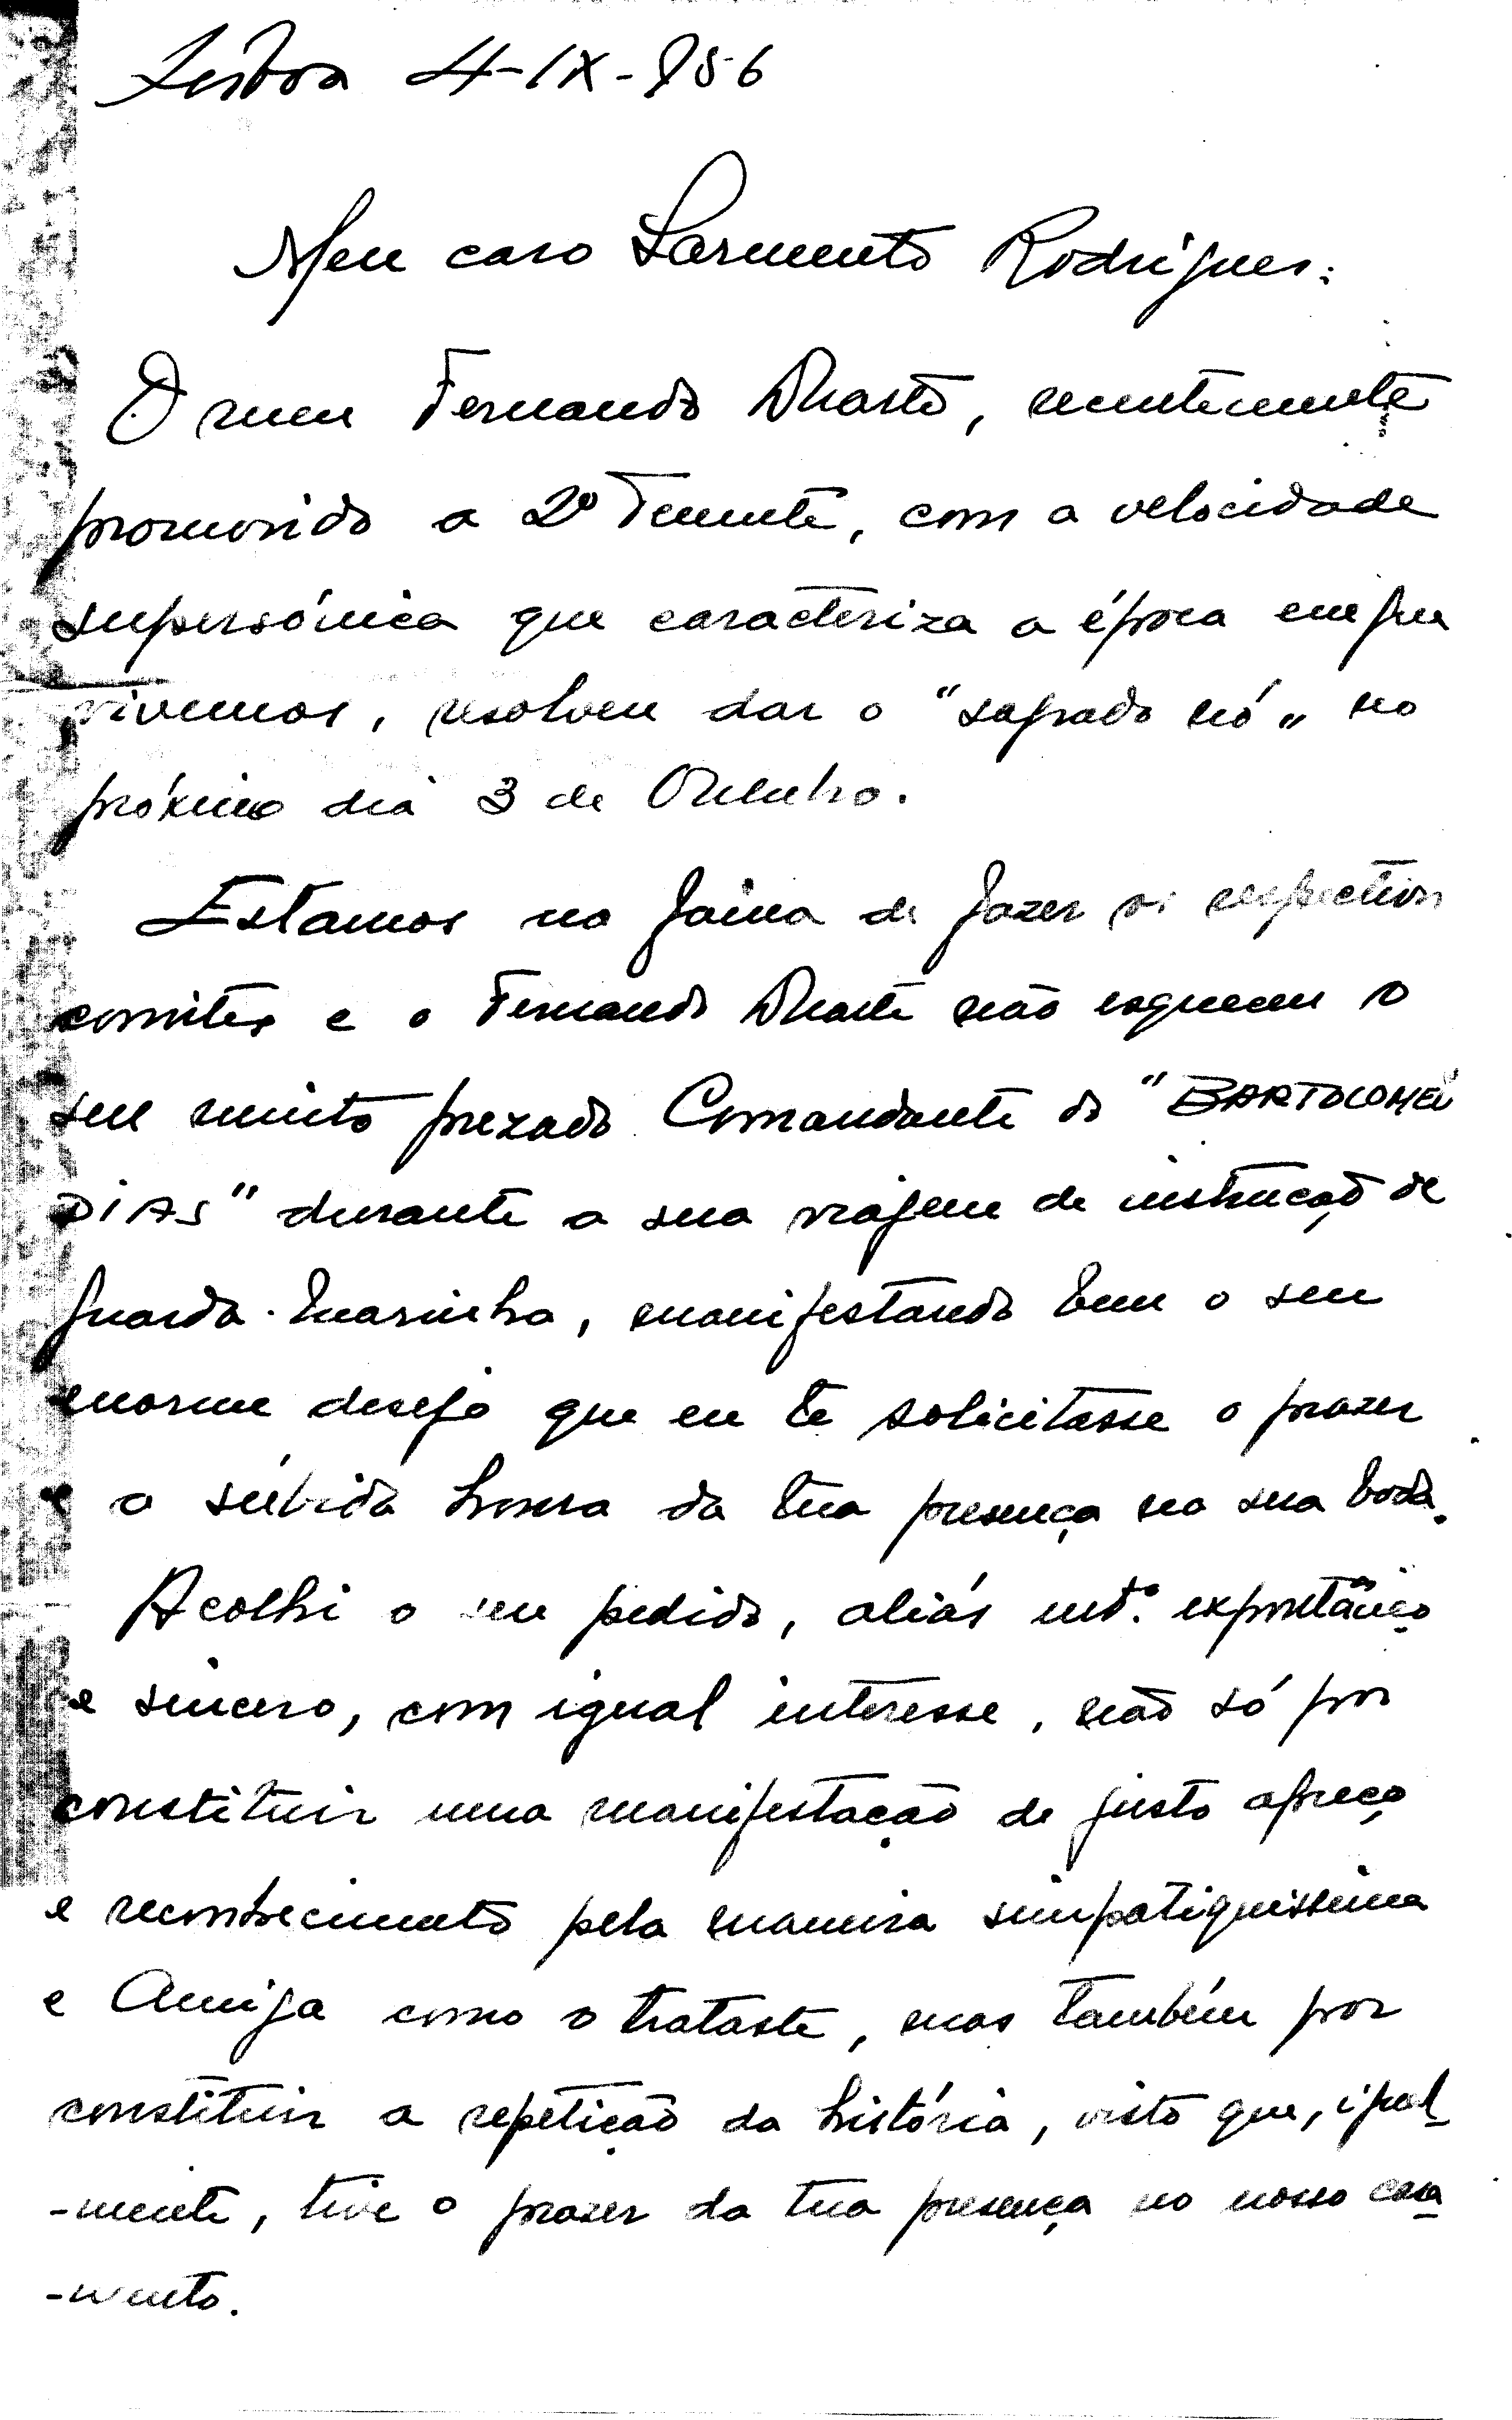 Lisboa 4-IX-956
Meu caro Sarmento Rodrigues:
O meu Fernando Duarte, recentemente
promovido a 2º Tenente, com a velocidade
supersónica que caracteriza a época em que
vivemos, resolveu dar o "sagrado nó" no
próximo dia 3 de Outubro.
Estamos na faina de fazer os respectivos
convites e o Fernando Duarte não esqueceu o
seu muito prezado Comandante do "BARTOLOMEU
DIAS" durante a sua viagem de instrucção de
guarda-marinha, manifestando bem o seu
enorme desejo que eu te solicitasse o prazer
e a súbida honra da tua presença na sua boda.
Acolhi o seu pedido, aliás mtº. expontâneo
e sincero, com igual interesse, não só por
constituir uma manifestação de justo apreço
e reconhecimento pela maneira simpatiquissima
e Amiga como o trataste, mas também por
constituir a repetição da história, visto que, igual-
-mente, tive o prazer da tua presença no nosso casa-
-mento.